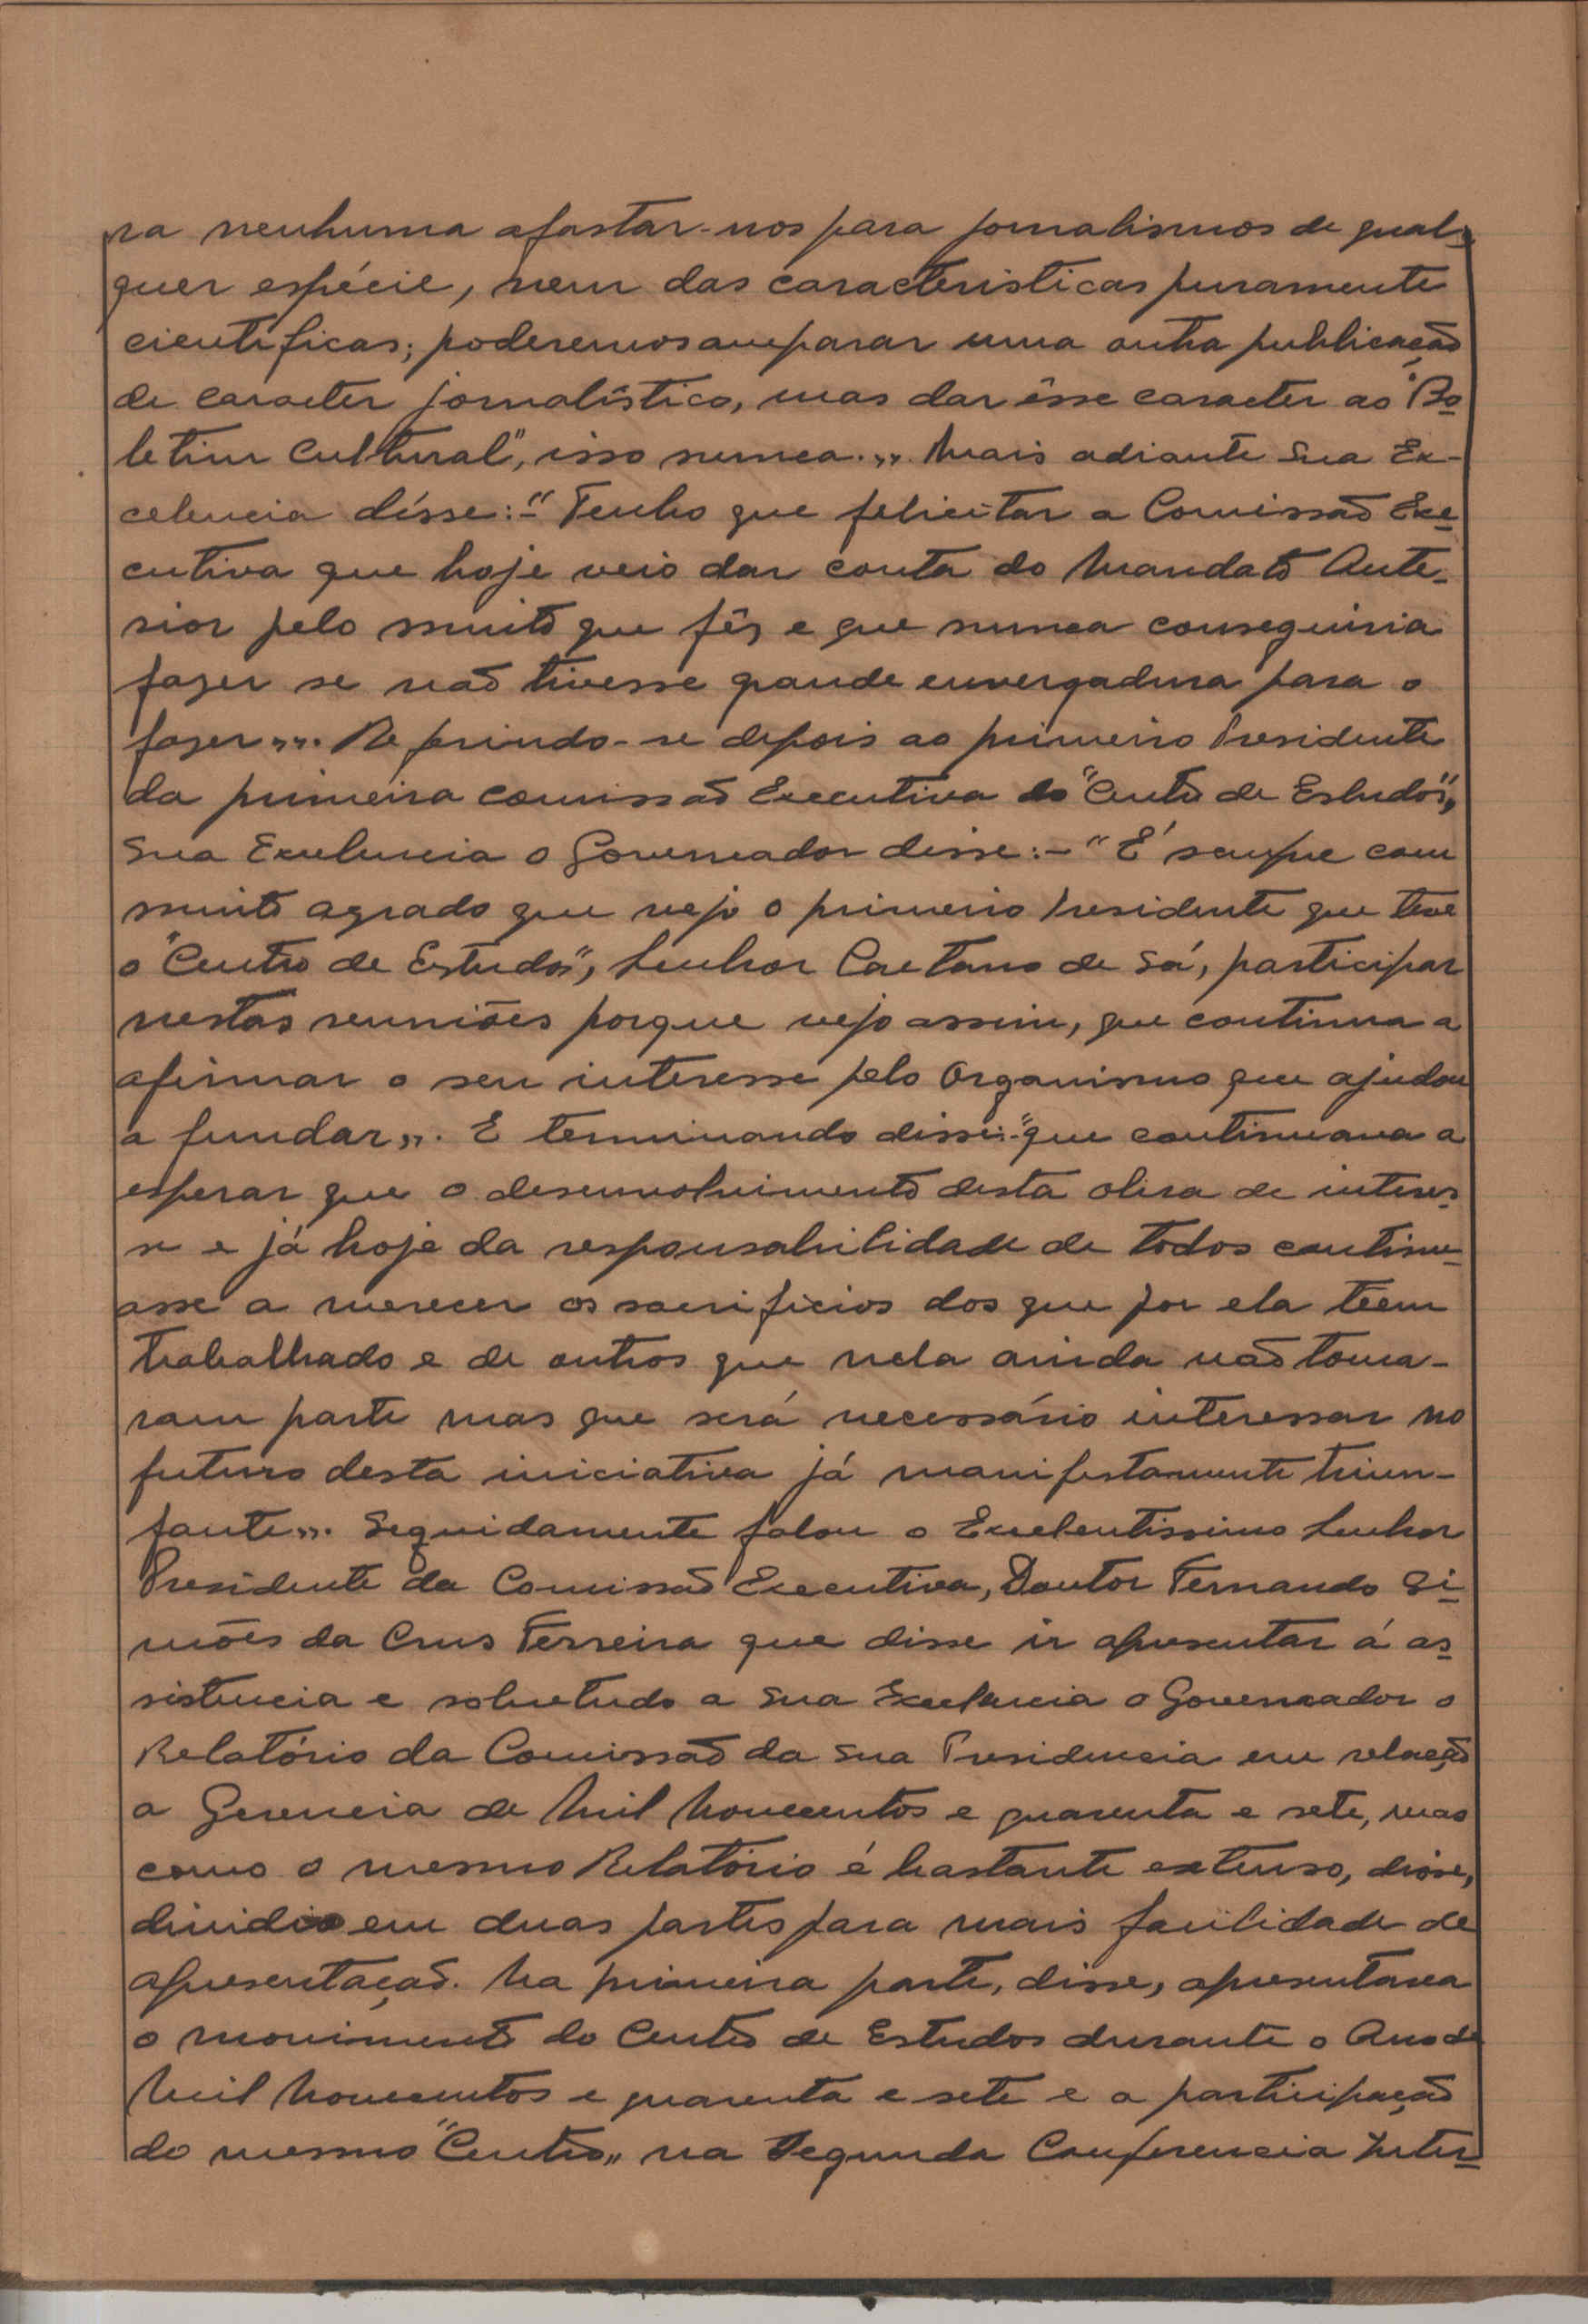 ra nenhuma afastar-nos para jornalismos de qual-
quer espécie, nem das caracteristicas puramente
cientificas; poderemos amparar uma outra publicação
de caracter jornalístico, mas dar êsse caracter ao "Bo
letim Cultural", isso nunca.,, Mais adiante Sua Ex-
celencia disse:-" Tenho que felicitar a Comissão Exe
cutiva que hoje veio dar conta do Mandato Ante-
rior pelo muito que fêz e que nunca conseguiria
fazer se não tivesse grande envergadura para o
fazer,,. Referindo-se depois ao primeiro Presidente
da primeira comissão Executiva do "Centro de Estudos",
Sua Excelencia o Governador disse:-" É sempre com
muito agrado que vejo o primeiro Presidente que teve
o "Centro de Estudos", Senhor Caetano de Sá, participar
nestas reuniões porque vejo assim, que continua a
afirmar o seu interesse pelo Organismo que ajudou
a fundar,,. E terminando disse:-"que continuava a
esperar que o desenvolvimento desta obra de interes-
se e já hoje da responsabilidade de todos continu-
asse a merecer os sacrificios dos que por ela teem
trabalhado e de outros que nela ainda não toma-
ram parte mas que será necessário interessar no
futuro desta iniciativa já manifestamente triun-
fante,,. Seguidamente falou o Excelentissimo Senhor
Presidente da Comissão Executiva, Doutor Fernando Si
mões da Crus Ferreira que disse ir apresentar á as
sistencia e sobretudo a Sua Excelencia o Governador o
Relatório da Comissão da sua Presidencia em relação
a Gerencia de Mil Novecentos e quarenta e sete, mas
como o mesmo Relatório é bastante extenso, disse,
dividio em duas partes para mais facilidade de
apresentação. Na primeira parte, disse, apresentava
o movimento do Centro de Estudos durante o Ano de
Mil Novecentos e quarenta e sete e a participação
do mesmo "Centro,, na Segunda Conferencia Inter-